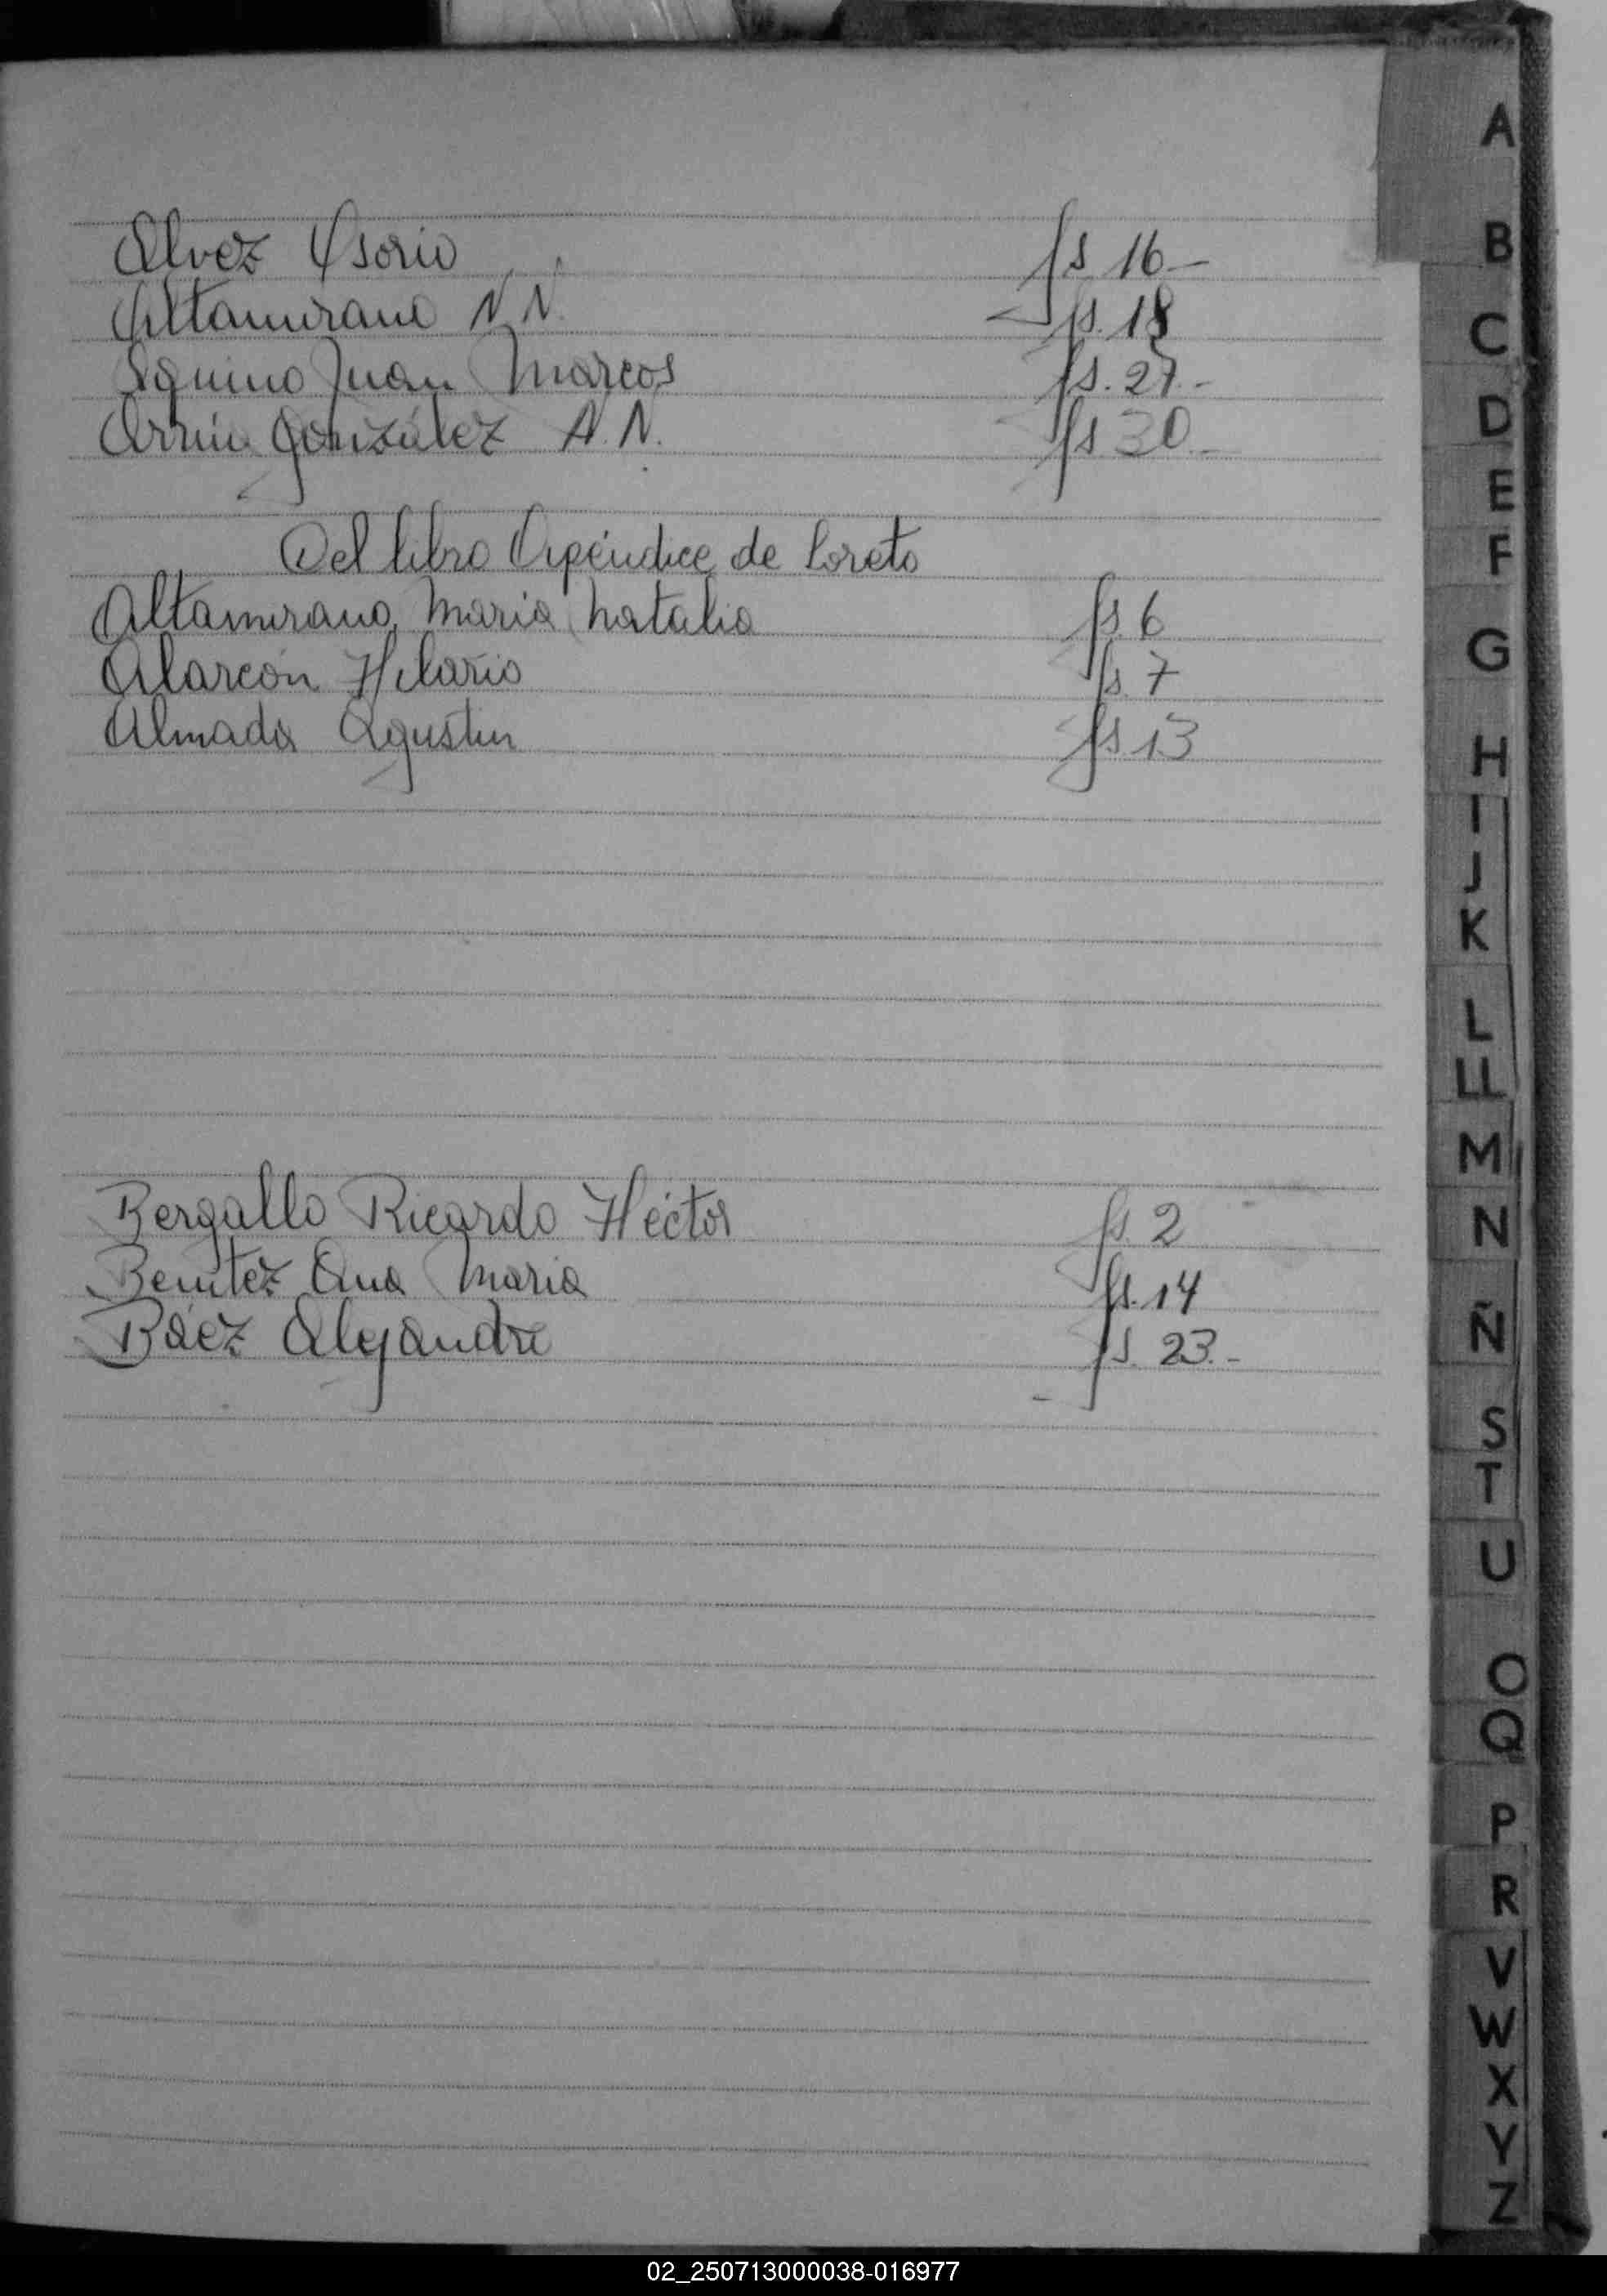 Alvez Osorio fs 16.-
Altamirano N.N. fs. 18
Aquino Juan Marcos fs. 27.-
González N.N. fs 30.-
Del libro Apéndice de Loreto
Altamirano, Maria Natalia fs. 6
Alarcón Hilario fs. 7
Almada Agustin fs. 13
Bergallo Ricardo Héctor fs. 2
Benitez Ana Maria fs. 14
Báez Alejandro fs. 23.-
A
B
C
D
E
F
G
H
I
J
K
L
LL
M
N
Ñ
S
T
U
O
Q
P
R
V
W
X
Y
Z
02_250713000038-016977